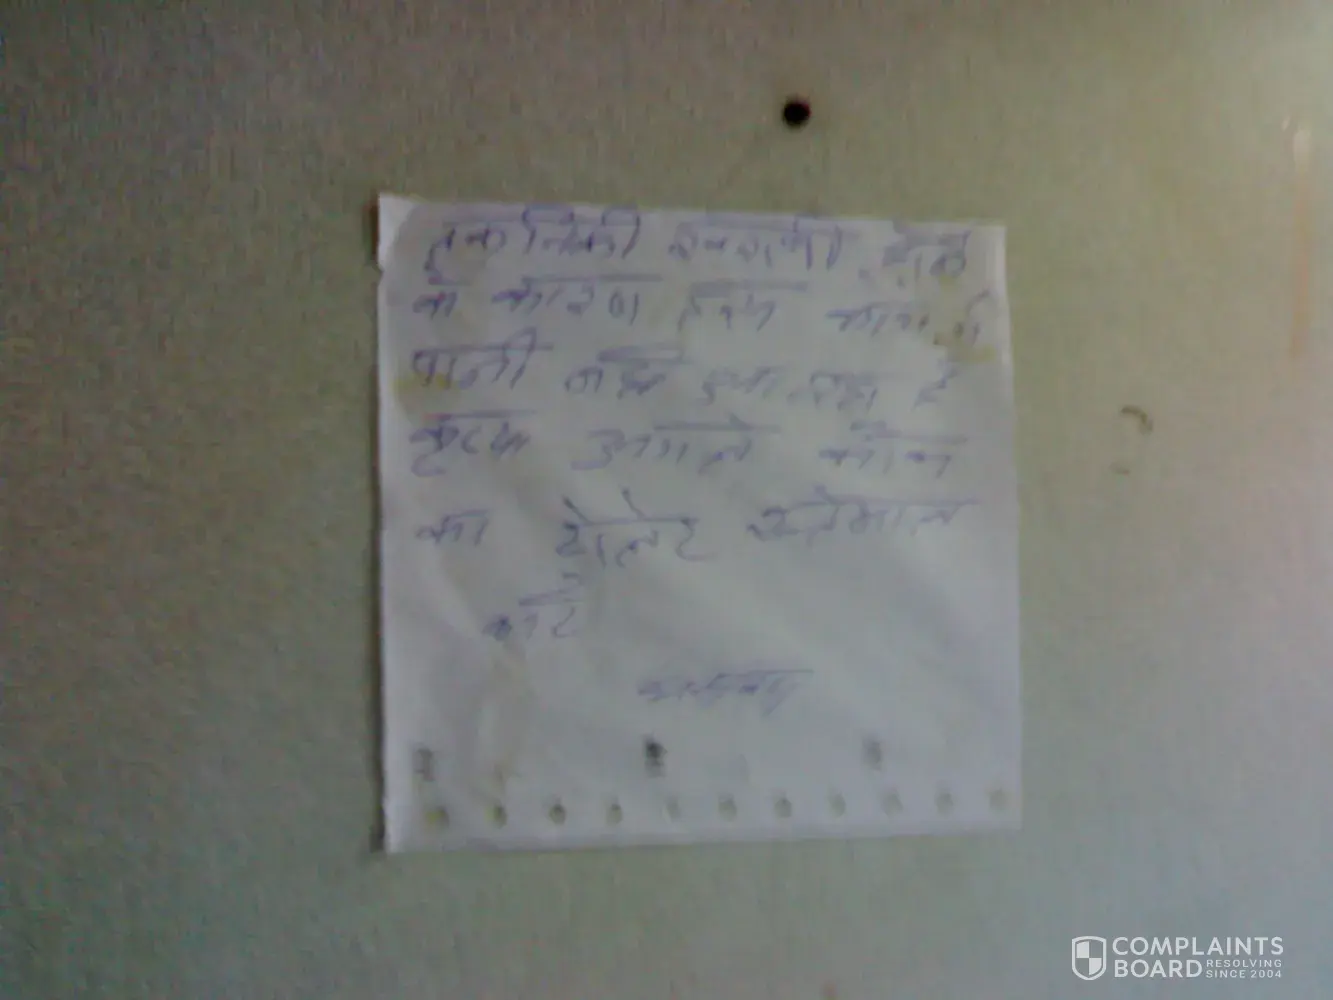 तकनिकी खराबी होने
के कारण इस कोच में
पानी नही आ रहा है
कृप्या अगले कोच
का टोलेट
करे
COMPLAINTS
BOARD RESOLVING
SINCE 2004